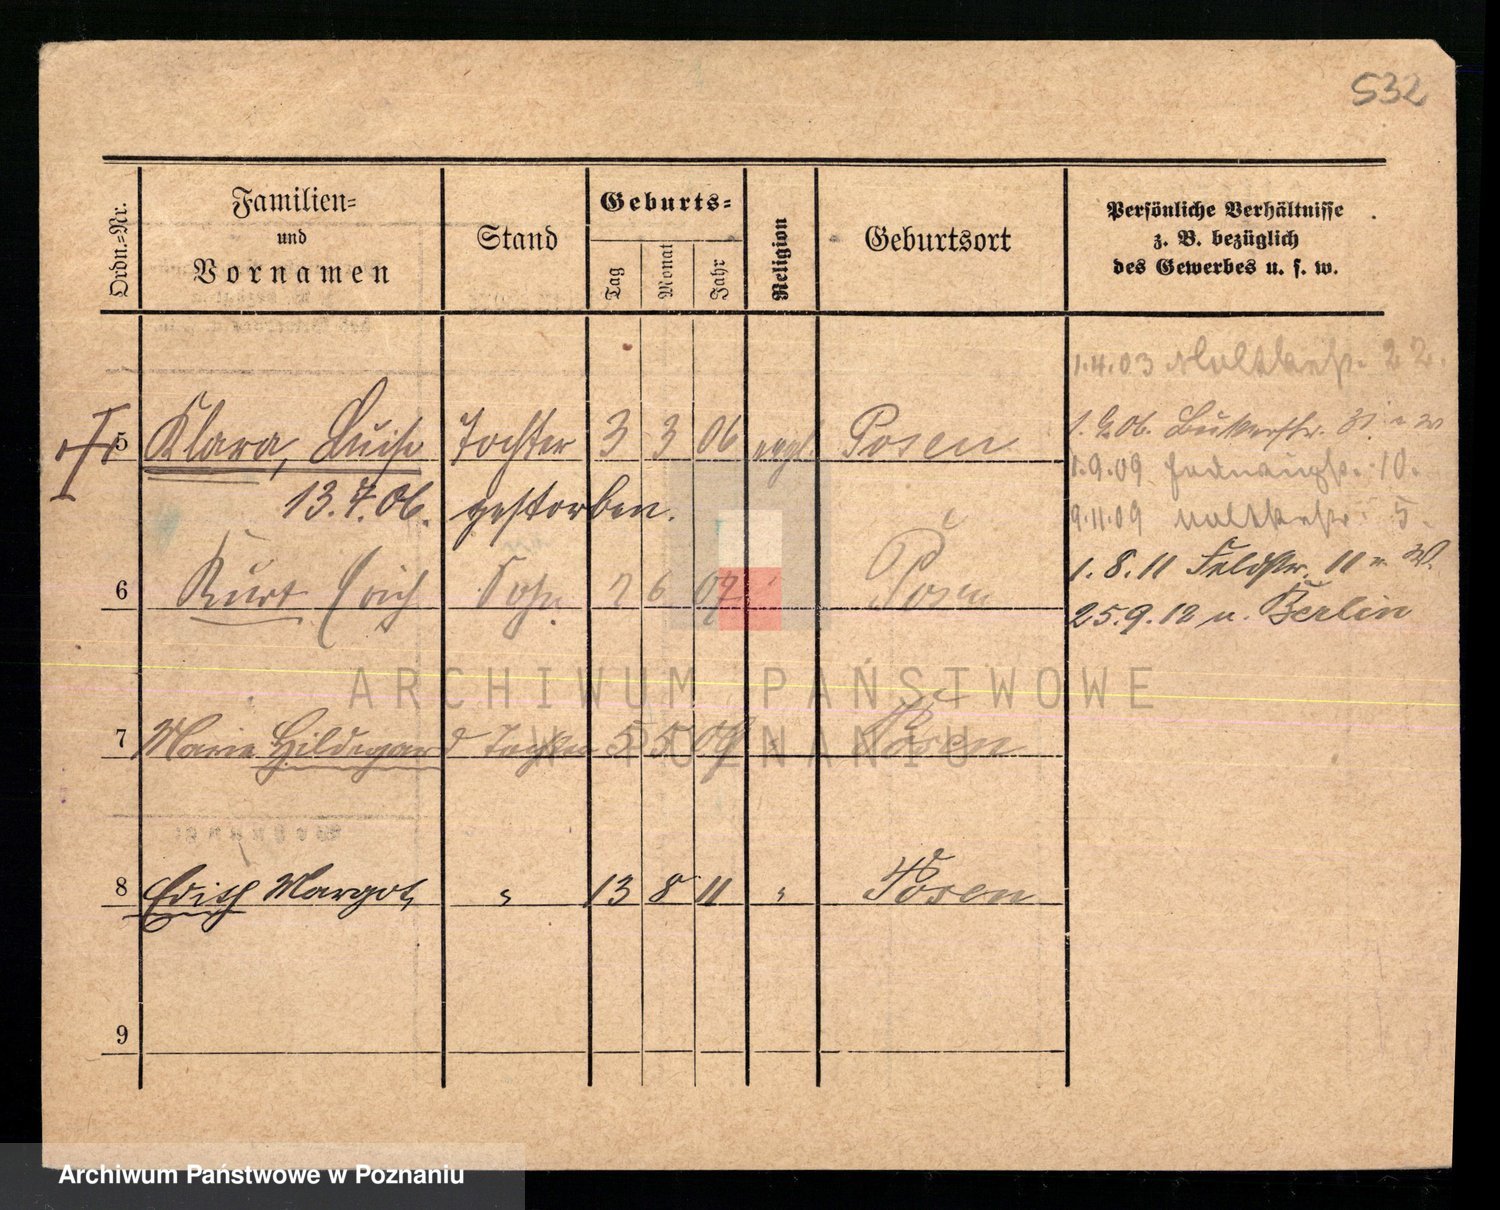 532
Ordn.=Nr.
Familien=
und
Vornamen
Stand
Geburts=
Tag
Monat
Jahr
Religion
Geburtsort
Persönliche Verhältnisse
z. B. bezüglich
des Gewerbes u. s. w.
1.4.03 Moltkestr. 22.
5 Klara, Luise Tochter 3 3 06 evgl. Posen
13.7.06. gestorben.
1.9.09 10.
9.11.09 Moltkestr. 5.
6 Kurt Erich Sohn 7 6 07 " Posen
1.8.11 Feldstr. 11 W.
25.9.12 n. Berlin
7 Marie Hildegard Tochter 5 5 09 " Posen
8 Edith Margot " 13 8 11 " Posen
9
ARCHIWUM PAŃSTWOWE
W POZNANIU
Archiwum Państwowe w Poznaniu